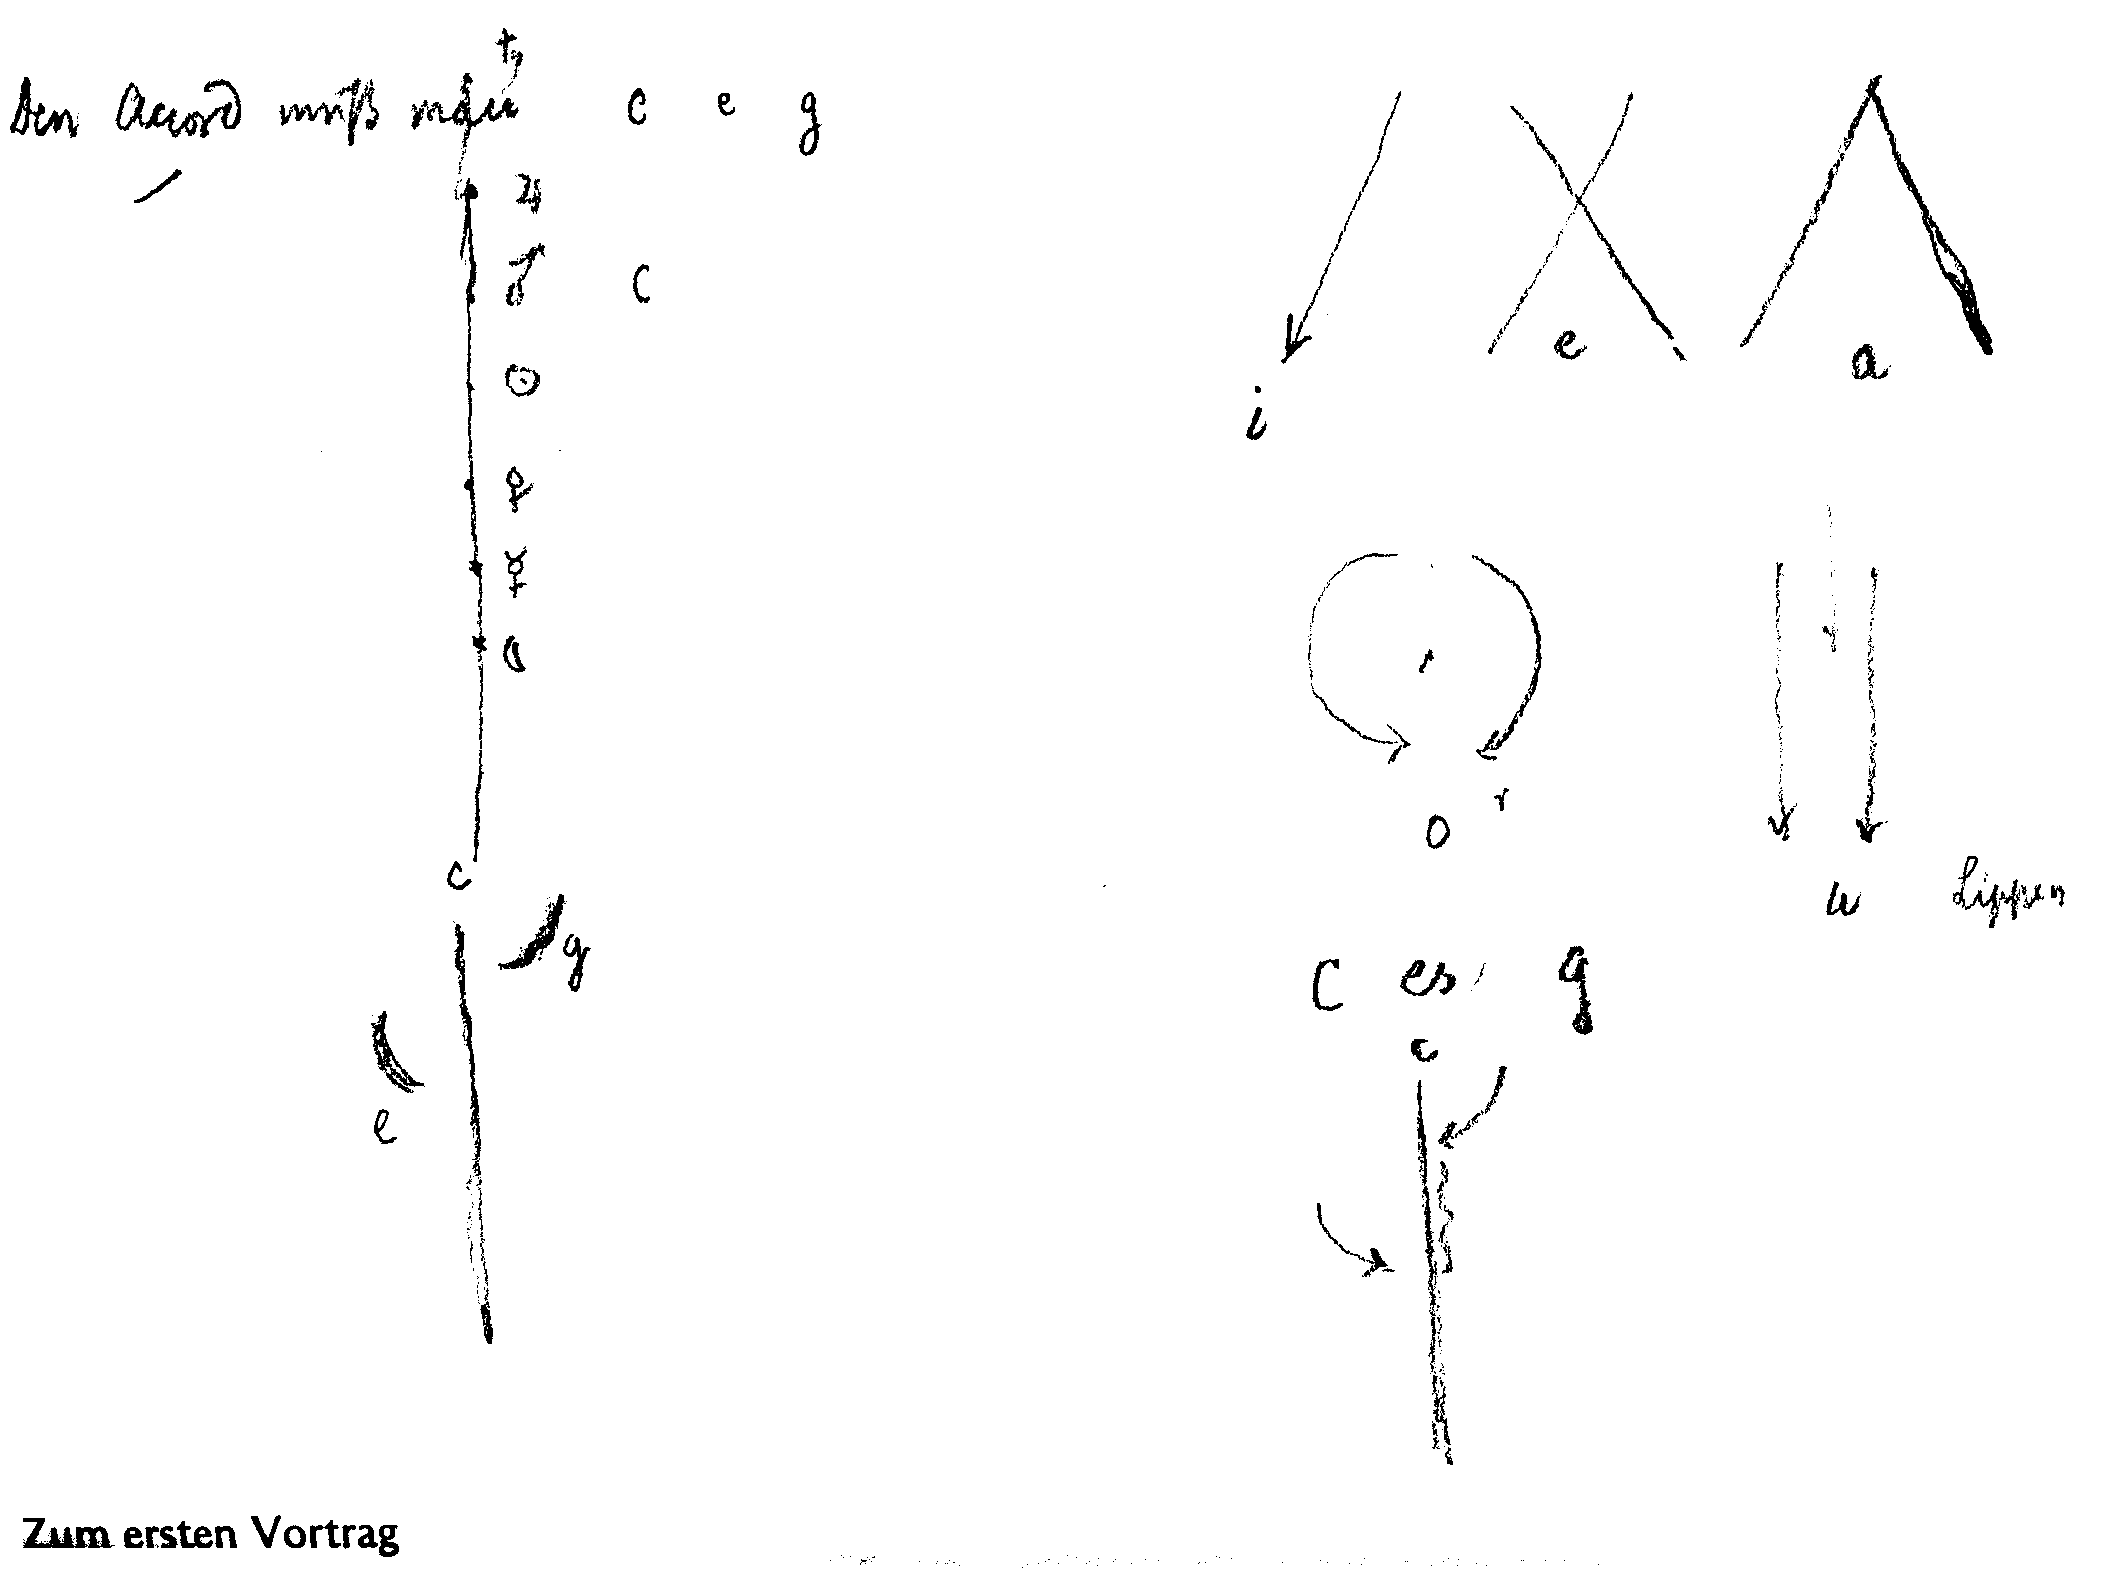 Den Accord muß man c e g
♄
♃
♂ c
☉
♀
☿
☾
c
g
e
i e a
o r
u Lippen
c es g
c
Zum ersten Vortrag